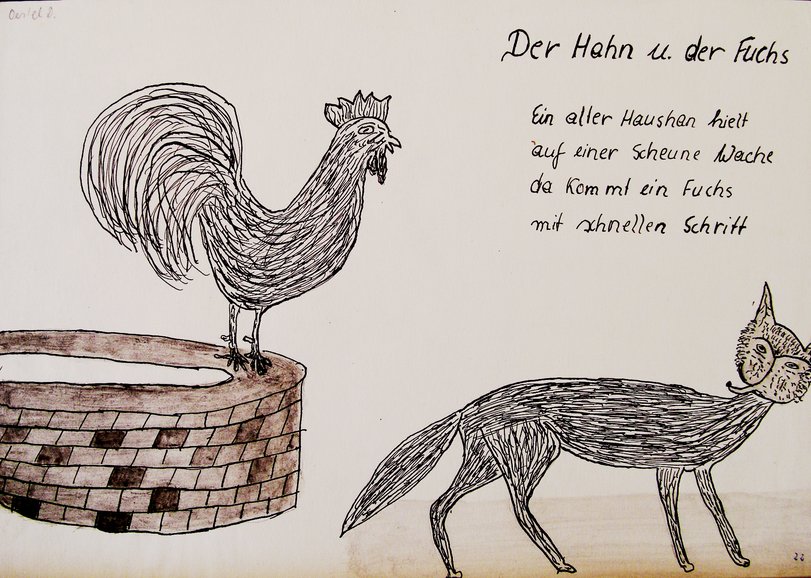 Der Hahn u. der Fuchs
Ein aller Haushan hielt
auf einer Scheune Wache
da kommt ein Fuchs
mit schnellen Schritt
22